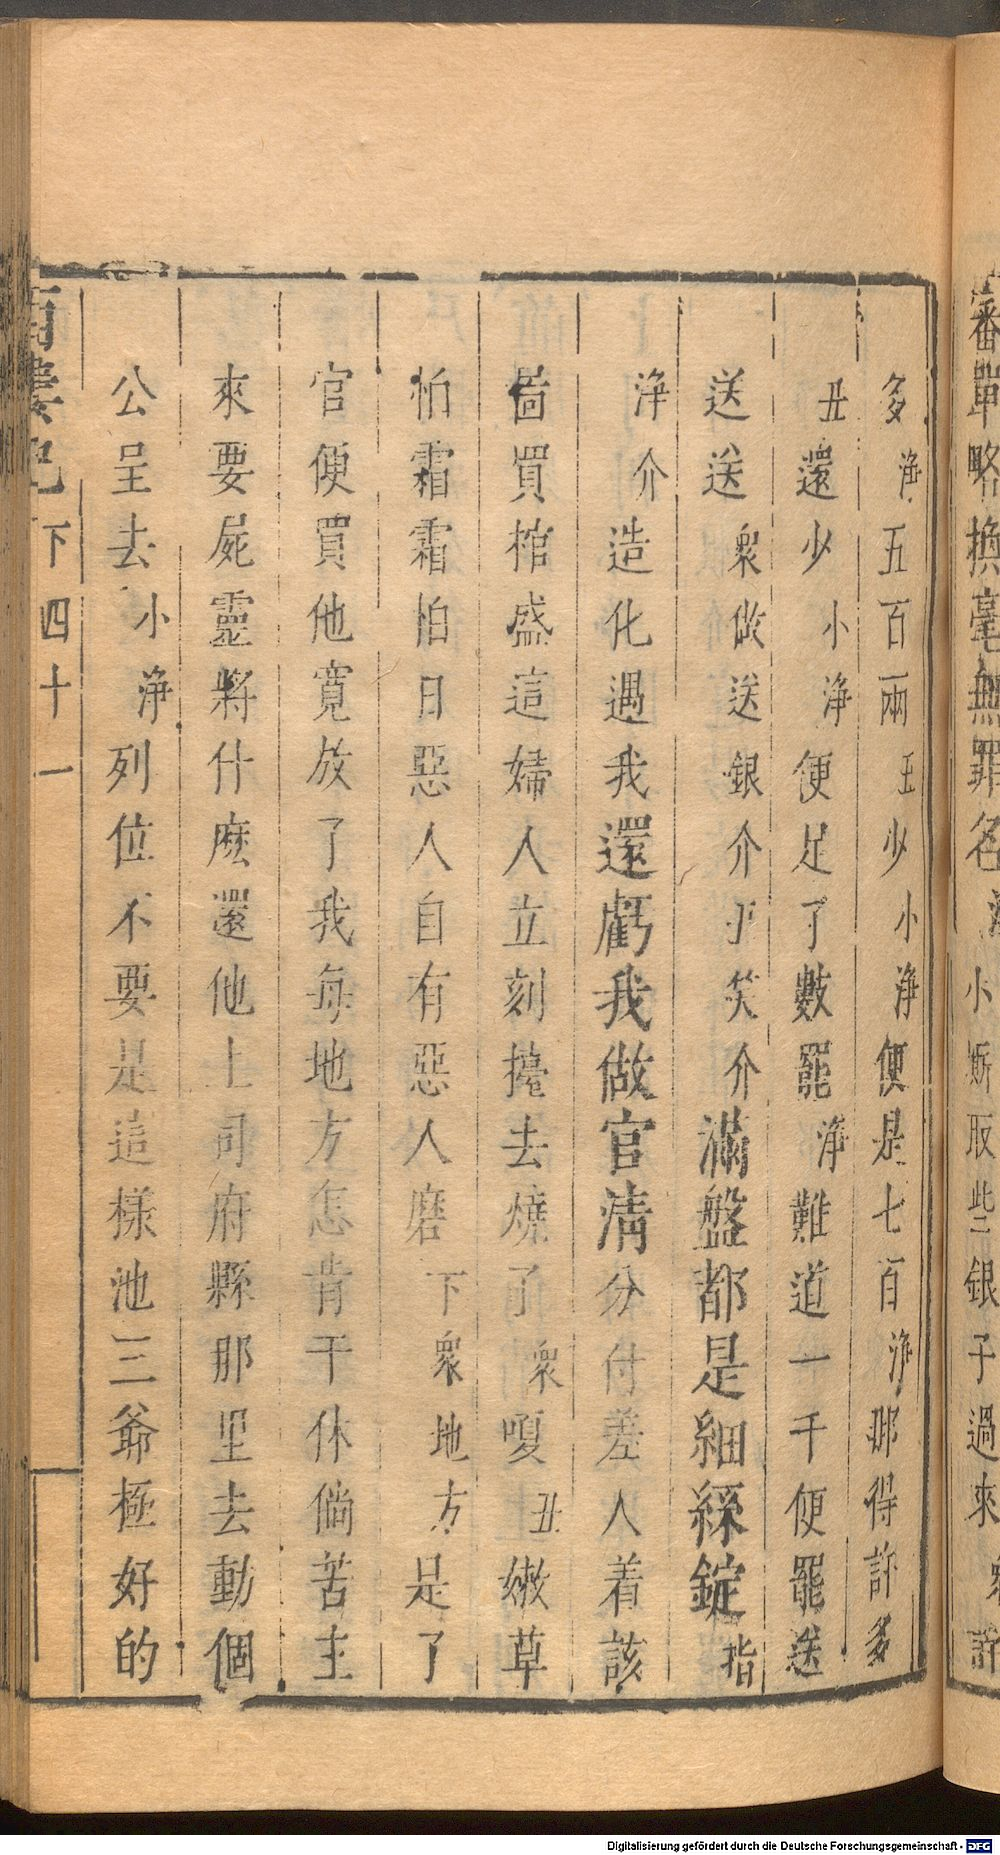 審單略換毫無罪名
小斯取些銀子過來
多淨五百兩丑少小淨便是七百淨那得許多
丑還少小淨便足了數罷淨難道一千便罷送
送送衆做送銀介丑笑介滿盤都是細絲錠指
淨介造化遇我還虧我做官清分付差人着該
啚買棺盛這婦人立刻擡去燒了衆嗄丑嫩草
怕霜霜怕日惡人自有惡人磨下衆地方是了
官便買他寬放了我每地方怎肯干休倘苦主
來要屍靈將什麽還他上司府縣那里去動個
公呈去小淨列位不要是這樣池三爺極好的
下 四十一
Digitalisierung gefördert durch die Deutsche Forschungsgemeinschaft - DFG